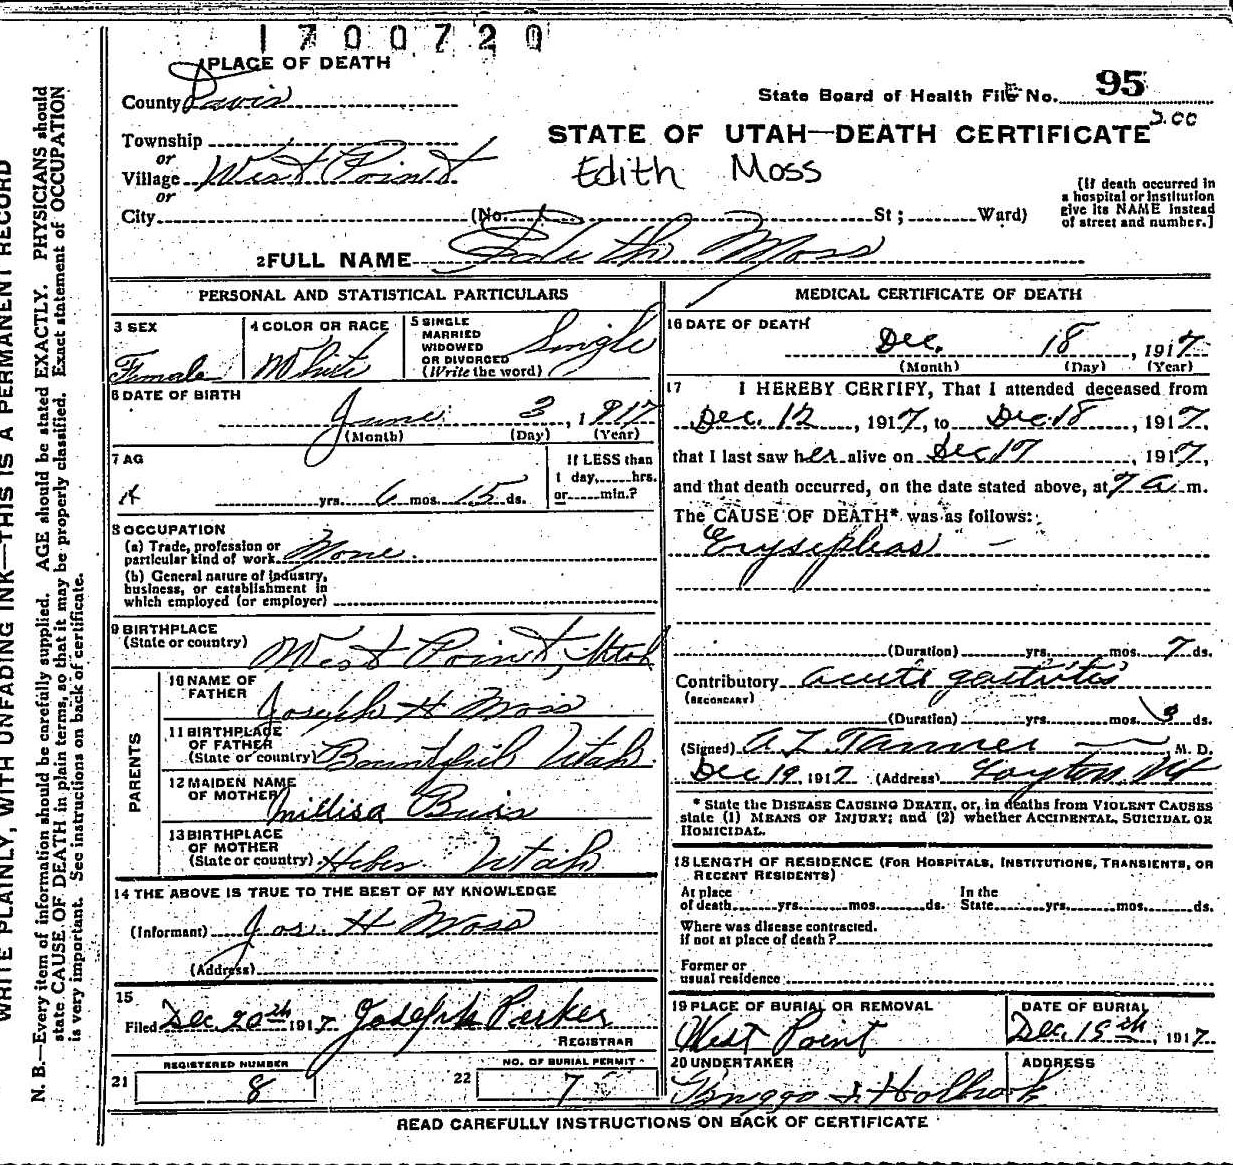 1700720
PLACE OF DEATH
County Davis
State Board of Health File No. 95
Township
STATE OF UTAH—DEATH CERTIFICATE
or
Village West Point
Edith Moss
or
City (No. St; Ward)
[If death occurred in
a hospital or institution
give its NAME instead
of street and number.]
2 FULL NAME Edith Moss
PERSONAL AND STATISTICAL PARTICULARS
3 SEX
Female
4 COLOR OR RACE
White
5 SINGLE
MARRIED
WIDOWED
OR DIVORCED
(Write the word)
Single
6 DATE OF BIRTH
June 3, 1917
(Month) (Day) (Year)
7 AG
yrs. 6 mos. 15 ds.
If LESS than
1 day, hrs.
or min.?
8 OCCUPATION
(a) Trade, profession or
particular kind of work None
(b) General nature of industry,
business, or establishment in
which employed (or employer)
9 BIRTHPLACE
(State or country) West Point, Utah
PARENTS
10 NAME OF
FATHER Joseph H Moss
11 BIRTHPLACE
OF FATHER
(State or country) Bountiful Utah
12 MAIDEN NAME
OF MOTHER Millisa
13 BIRTHPLACE
OF MOTHER
(State or country) Heber Utah
14 THE ABOVE IS TRUE TO THE BEST OF MY KNOWLEDGE
(Informant) Jos. H Moss
(Address)
15
Filed Dec. 20th 1917 Joseph Parker
REGISTRAR
REGISTERED NUMBER
21 8
NO. OF BURIAL PERMIT
22 7
MEDICAL CERTIFICATE OF DEATH
16 DATE OF DEATH
Dec. 18, 1917
(Month) (Day) (Year)
17 I HEREBY CERTIFY, That I attended deceased from
Dec. 12, 1917, to Dec. 18, 1917,
that I last saw her alive on Dec 17, 1917,
and that death occurred, on the date stated above, at 7 a m.
The CAUSE OF DEATH* was as follows:
Erysiplas
(Duration) yrs. mos. 7 ds.
Contributory acute gastritis
(SECONDARY)
(Duration) yrs. mos. 3 ds.
(Signed) A L Tanner, M. D.
Dec 19, 1917 (Address) Layton Ut
* State the DISEASE CAUSING DEATH, or, in deaths from VIOLENT CAUSES
state (1) MEANS OF INJURY; and (2) whether ACCIDENTAL, SUICIDAL OR
HOMICIDAL.
18 LENGTH OF RESIDENCE (FOR HOSPITALS, INSTITUTIONS, TRANSIENTS, OR
RECENT RESIDENTS)
At place
of death yrs. mos. ds.
In the
State yrs. mos. ds.
Where was disease contracted.
if not at place of death?
Former or
usual residence
19 PLACE OF BURIAL OR REMOVAL
West Point
DATE OF BURIAL
Dec. 19th, 1917
20 UNDERTAKER
Holbrook
ADDRESS
READ CAREFULLY INSTRUCTIONS ON BACK OF CERTIFICATE
WRITE PLAINLY, WITH UNFADING INK—THIS IS A PERMANENT RECORD
N. B.—Every item of information should be carefully supplied. AGE should be stated EXACTLY. PHYSICIANS should
state CAUSE OF DEATH in plain terms, so that it may be properly classified. Exact statement of OCCUPATION
is very important. See instructions on back of certificate.